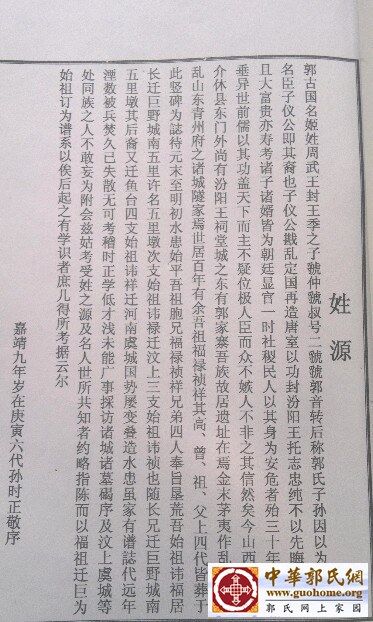 姓源
郭古国名姬姓周武王封王季之子虢仲虢叔号二虢虢郭音转后称郭氏子孙因以为
名臣子仪公即其裔也子仪公戡乱定国再造唐室以功封汾阳王托志忠纯不以先晦
且大富贵亦寿考诸子诸婿皆为朝廷显官一时社稷民人以其身为安危者殆三十年
垂异世前儒以其功盖天下而主不疑位极人臣而众不嫉人不非之其信然矣今山西
介休县东门外尚有汾阳王祠堂城之东有郭家寨吾族故居遗址在焉金末茅夷作乱
乱山东青州府之诸城隧家焉世居百年有余吾祖福禄祯祥其高、曾、祖、父上四代皆葬于
此竖碑为誌待元末至明初水患始平吾祖胞兄福禄祯祥兄弟四人奉旨垦荒吾始祖讳福居
长迁巨野城南五里许名五里墩次支始祖讳禄迁汶上三支始祖讳祯也随长兄迁巨野城南
五里墩其后裔又迁鱼台四支始祖讳祥迁河南虞城国势屡变叠造水患虽家有谱誌代远年
湮数被兵焚久已失散无可考稽时正学低才浅未能广事採访诸城诸墓碣序及汶上虞城等
处同族之人不敢妄为附会兹姑考受姓之源及名人世所共知者约略指陈而以福祖迁巨为
始祖订为谱系以俟后起之有学识者庶几得所考据云尔
嘉靖九年岁在庚寅六代孙时正敬序
中華郭氏網
www.guohome.org
郭氏网上家园